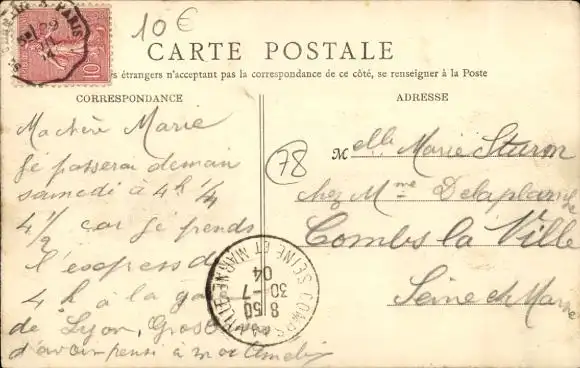 10€
CARTE POSTALE
s étrangers n'acceptant pas la correspondance de ce côté, se renseigner à la Poste
CORRESPONDANCE
Ma chère Marie
Je passerai demain
samedi à 4h 1/4
4 1/2 car je prends
l'express de
4h à la gare
de Lyon, Gros
d'avoir pensé à moi
ADRESSE
78
Melle Marie Sturm
chez Mme Delaplanche
Combs la Ville
Seine et Marne
A PARIS
10
SEINE ET MARNE
COMBS LA VILLE
8 50
30 -7
04